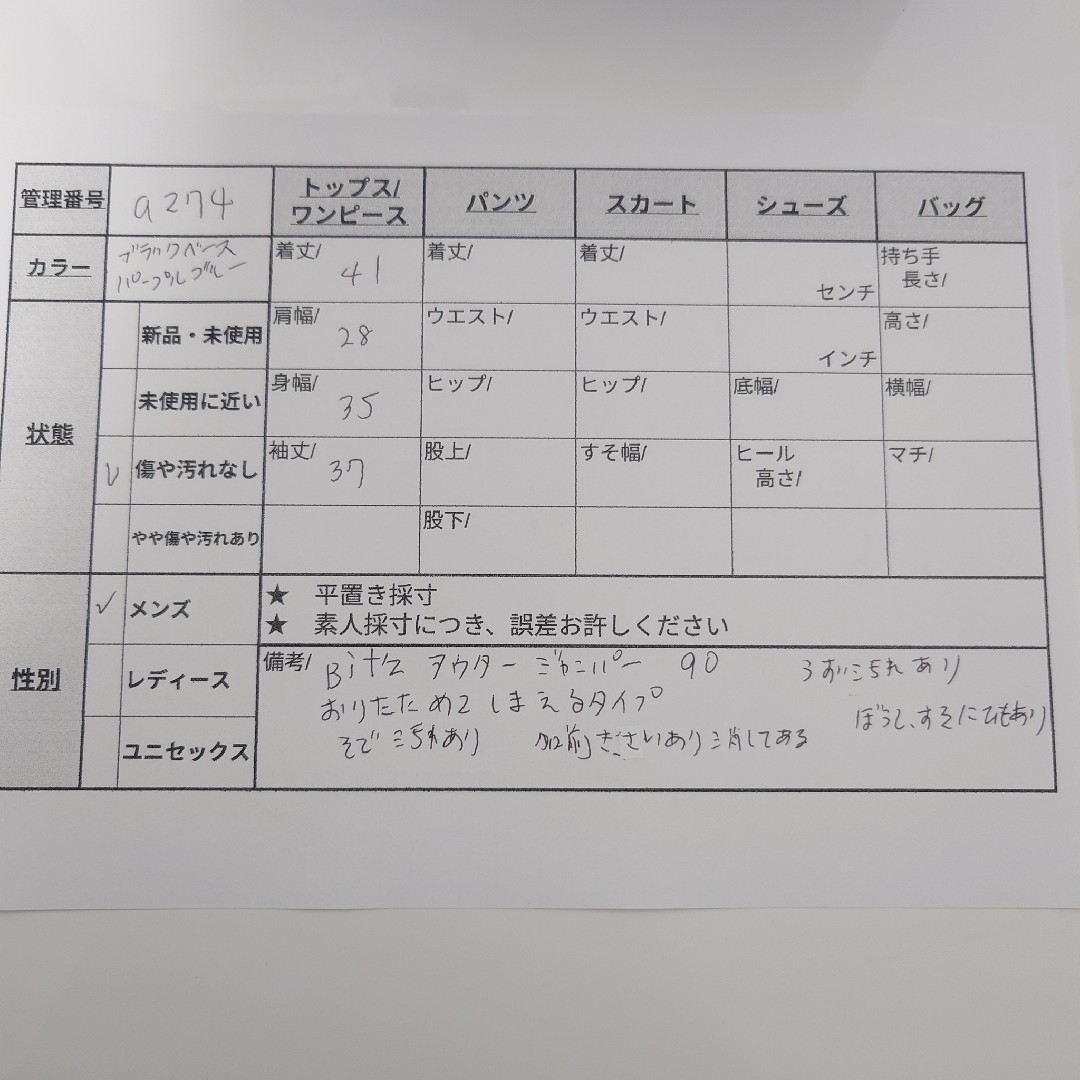 管理番号 a274 トップス/ワンピース パンツ スカート シューズ バッグ
カラー ブラックベース パープルブルー 着丈/ 41 着丈/ 着丈/ センチ 持ち手長さ/
状態 新品・未使用 肩幅/ 28 ウエスト/ ウエスト/ インチ 高さ/
未使用に近い 身幅/ 35 ヒップ/ ヒップ/ 底幅/ 横幅/
レ 傷や汚れなし 袖丈/ 37 股上/ すそ幅/ ヒール高さ/ マチ/
やや傷や汚れあり 股下/
性別 ✓ メンズ ★ 平置き採寸
★ 素人採寸につき、誤差お許しください
レディース 備考/ Bit'z アウター ジャンパー 90 汚れあり
おりたためてしまえるタイプ ぼうし、すそにひもあり
ユニセックス そで 汚れあり 名前 あり 消してある